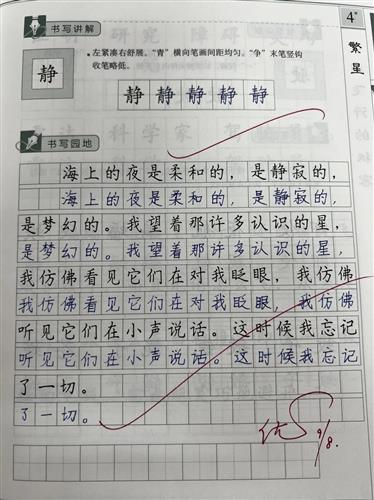 4*
繁星
书写讲解
左紧凑右舒展。“青”横向笔画间距均匀。“争”末笔竖钩
收笔略低。
静
静静静静静
书写园地
海上的夜是柔和的，是静寂的，
海上的夜是柔和的，是静寂的，
是梦幻的。我望着那许多认识的星，
是梦幻的。我望着那许多认识的星，
我仿佛看见它们在对我眨眼，我仿佛
我仿佛看见它们在对我眨眼，我仿佛
听见它们在小声说话。这时候我忘记
听见它们在小声说话。这时候我忘记
了一切。
了一切。
优
9/8.